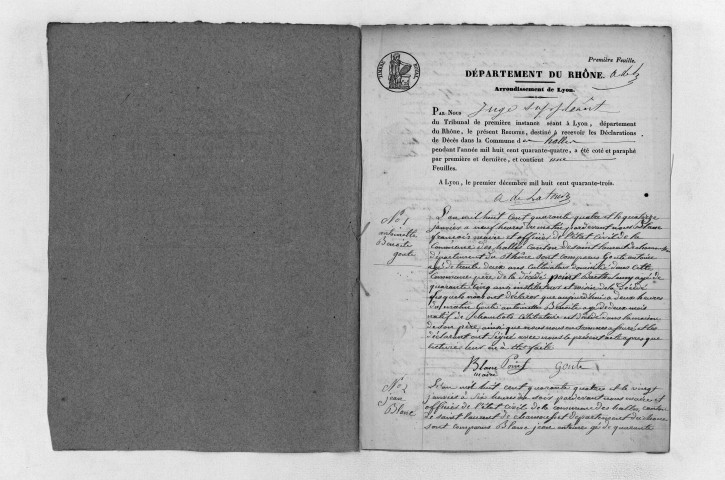 Première Feuille.
DÉPARTEMENT DU RHÔNE.
Arrondissement de Lyon.
PAR NOUS Juge suppléant
du Tribunal de première instance séant à Lyon, département
du Rhône, le présent REGISTRE, destiné à recevoir les Déclarations
de Décès dans la Commune d es halles
pendant l'année mil huit cent quarante-quatre, a été coté et paraphé
par première et dernière, et contient une
Feuilles.
A Lyon, le premier décembre mil huit cent quarante-trois.
N° 1
antoinette
Benoite
goute
L'an mil huit cent quarante quatre et le quatorze
janvier a neuf heures du matin pardevant nous Blanc
françois maire et officier de l'état civil de la
commune des halles canton de saint laurent de
département du rhône sont comparus Goute antoine
agé de trente deux ans cultivateur domicilié dans cette
commune père de la décédé Point Barthelemy agé de
quarante cinq ans instituteur et voisin de la décédé
lesquels nous ont déclaré que aujourd'hui a deux heures
du matin Goute antoinette Benoite agé de deux mois
natif de célibataire est décédé dans la maison
de son père ainsi que nous nous en sommes assuré et les
déclarant ont signé avec nous le présent acte après que
lecture leur en a été faite
Blanc Point Goute
maire
N° 2
jean
Blanc
L'an mil huit cent quarante quatre et le vingt
janvier à six heures du soir pardevant nous maire et
officier de l'état civil de la commune des halles canton
de saint laurent de chamousset département du rhone
sont comparus Blanc jean antoine agé de quarante